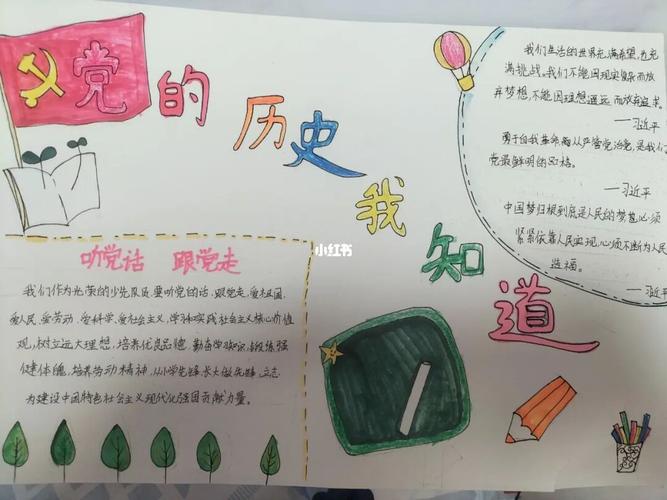 党的
历史
我
知
道
我们生活的世界充满希望,也充
满挑战。我们不能因现实复杂而放
弃梦想,不能因理想遥远而放弃追求。
—习近平
勇于自我革命,从严管党治党,是我们
党最鲜明的品格。
—习近平
中国梦归根到底是人民的梦,必须
紧紧依靠人民实现,必须不断为人民
造福。
—习近平
小红书
听党话 跟党走
我们作为光荣的少先队员,要听党的话、跟党走,爱祖国、
爱人民、爱劳动、爱科学、爱社会主义,学习和实践社会主义核心价值
观,树立远大理想,培养优良品德,勤奋学知识,锻练强
健体魄,培养劳动精神,从小学先锋,长大做先锋,立志
为建设中国特色社会主义现代化强国贡献力量。